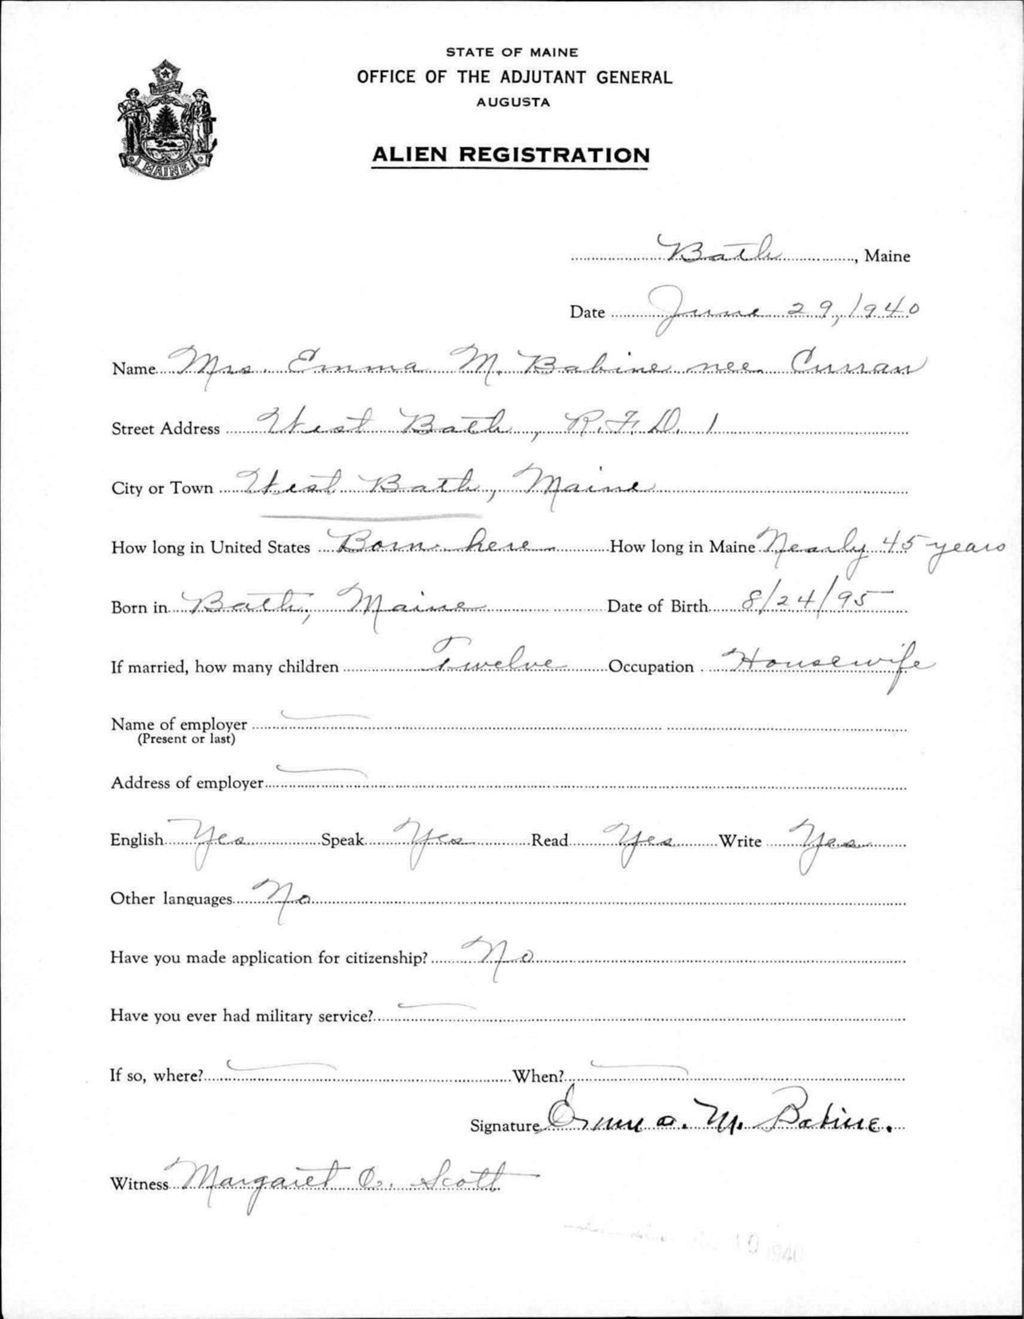 STATE OF MAINE
OFFICE OF THE ADJUTANT GENERAL
AUGUSTA
ALIEN REGISTRATION
MAINE
Bath, Maine
Date June 29, 1940
Name Mrs. Emma M. Babine nee Curran
Street Address West Bath, R.F.D. 1
City or Town West Bath, Maine
How long in United States Born here How long in Maine Nearly 45 years
Born in Bath, Maine Date of Birth 8/24/95
If married, how many children Twelve Occupation Housewife
Name of employer
(Present or last)
Address of employer
English Yes Speak Yes Read Yes Write Yes
Other languages No
Have you made application for citizenship? No
Have you ever had military service?
If so, where? When?
Signature Emma M. Babine.
Witness Margaret C. Scott
10 1940